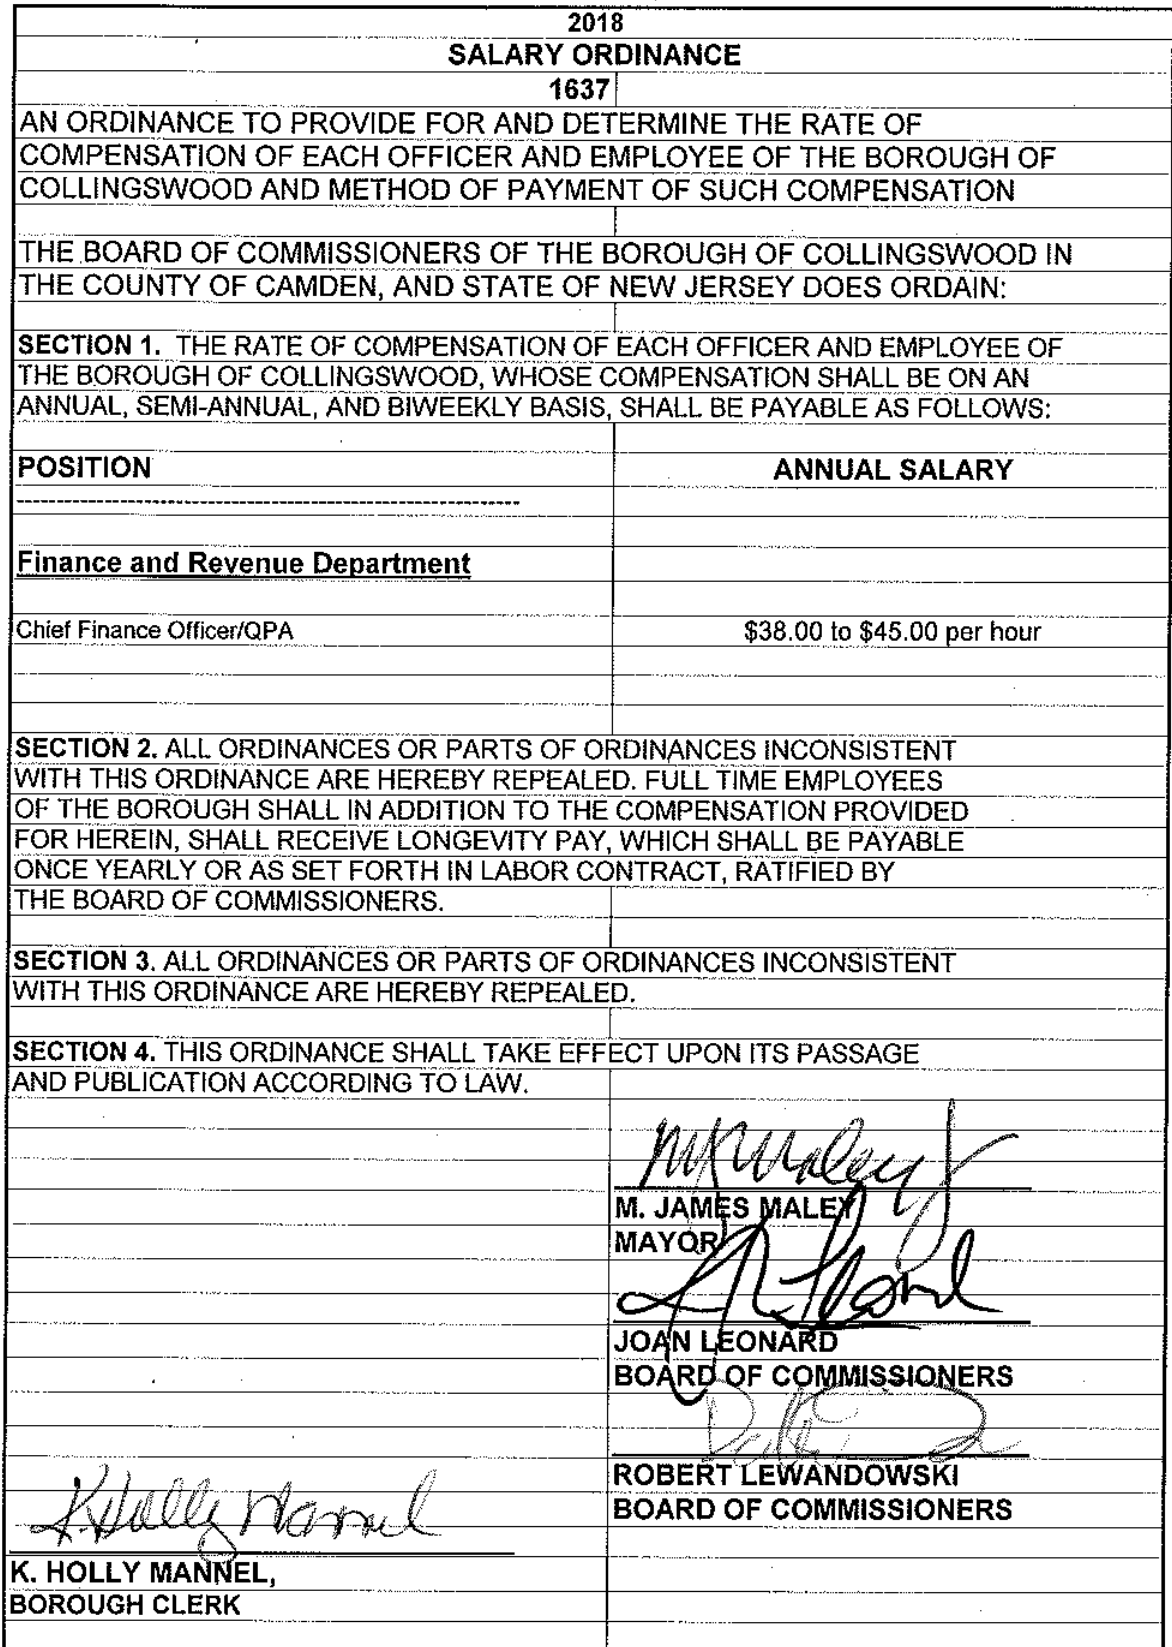 2018
SALARY ORDINANCE
1637
AN ORDINANCE TO PROVIDE FOR AND DETERMINE THE RATE OF
COMPENSATION OF EACH OFFICER AND EMPLOYEE OF THE BOROUGH OF
COLLINGSWOOD AND METHOD OF PAYMENT OF SUCH COMPENSATION
THE BOARD OF COMMISSIONERS OF THE BOROUGH OF COLLINGSWOOD IN
THE COUNTY OF CAMDEN, AND STATE OF NEW JERSEY DOES ORDAIN:
SECTION 1. THE RATE OF COMPENSATION OF EACH OFFICER AND EMPLOYEE OF
THE BOROUGH OF COLLINGSWOOD, WHOSE COMPENSATION SHALL BE ON AN
ANNUAL, SEMI-ANNUAL, AND BIWEEKLY BASIS, SHALL BE PAYABLE AS FOLLOWS:
POSITION ANNUAL SALARY
----------------------------------------------------------------
Finance and Revenue Department
Chief Finance Officer/QPA $38.00 to $45.00 per hour
SECTION 2. ALL ORDINANCES OR PARTS OF ORDINANCES INCONSISTENT
WITH THIS ORDINANCE ARE HEREBY REPEALED. FULL TIME EMPLOYEES
OF THE BOROUGH SHALL IN ADDITION TO THE COMPENSATION PROVIDED
FOR HEREIN, SHALL RECEIVE LONGEVITY PAY, WHICH SHALL BE PAYABLE
ONCE YEARLY OR AS SET FORTH IN LABOR CONTRACT, RATIFIED BY
THE BOARD OF COMMISSIONERS.
SECTION 3. ALL ORDINANCES OR PARTS OF ORDINANCES INCONSISTENT
WITH THIS ORDINANCE ARE HEREBY REPEALED.
SECTION 4. THIS ORDINANCE SHALL TAKE EFFECT UPON ITS PASSAGE
AND PUBLICATION ACCORDING TO LAW.
M. JAMES MALEY
MAYOR
JOAN LEONARD
BOARD OF COMMISSIONERS
ROBERT LEWANDOWSKI
BOARD OF COMMISSIONERS
K. Holly Mannel
K. HOLLY MANNEL,
BOROUGH CLERK